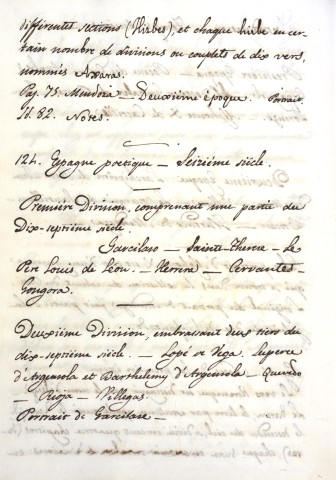 différentes sections (Hisbes), et chaque hisbe en cer-
tain nombre de divisions ou couplets de dix vers,
nommés Axaras.
Pag. 75. Mendoza — Deuxième époque. Portrait.
Id. 82. Notes.
124. Espagne poetique — Seizième siècle.
Première Division, comprenant une partie du
Dix-septième siècle.
Garcilaso — Sainte-Therese — Le
Pere Louis de Léon. — Herrera — Cervantes —
Gongora.
Deuxième Division, embrassant deux tiers du
dix-septième siècle. — Lopé de Vega. Luperce
d'Argensola et Barthélemy d'Argensola — Quevedo
— Rioja — Villegas.
Portrait de Garcilaso —